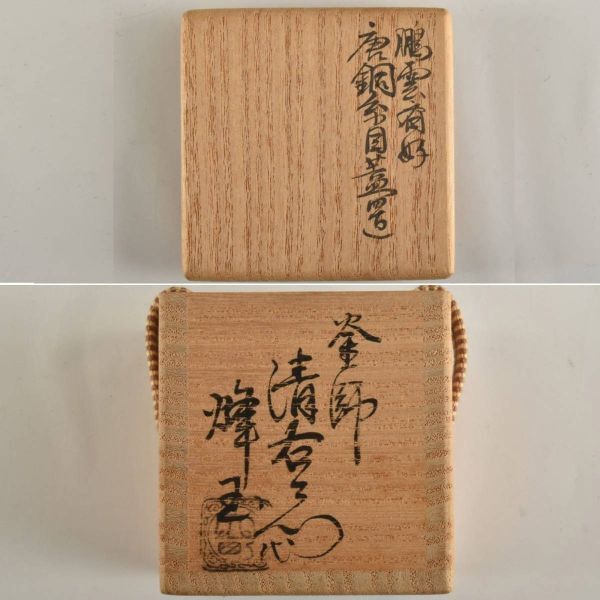 鵬雲斎好
唐銅糸目蓋置
釜師
清右衛門代
烽玉